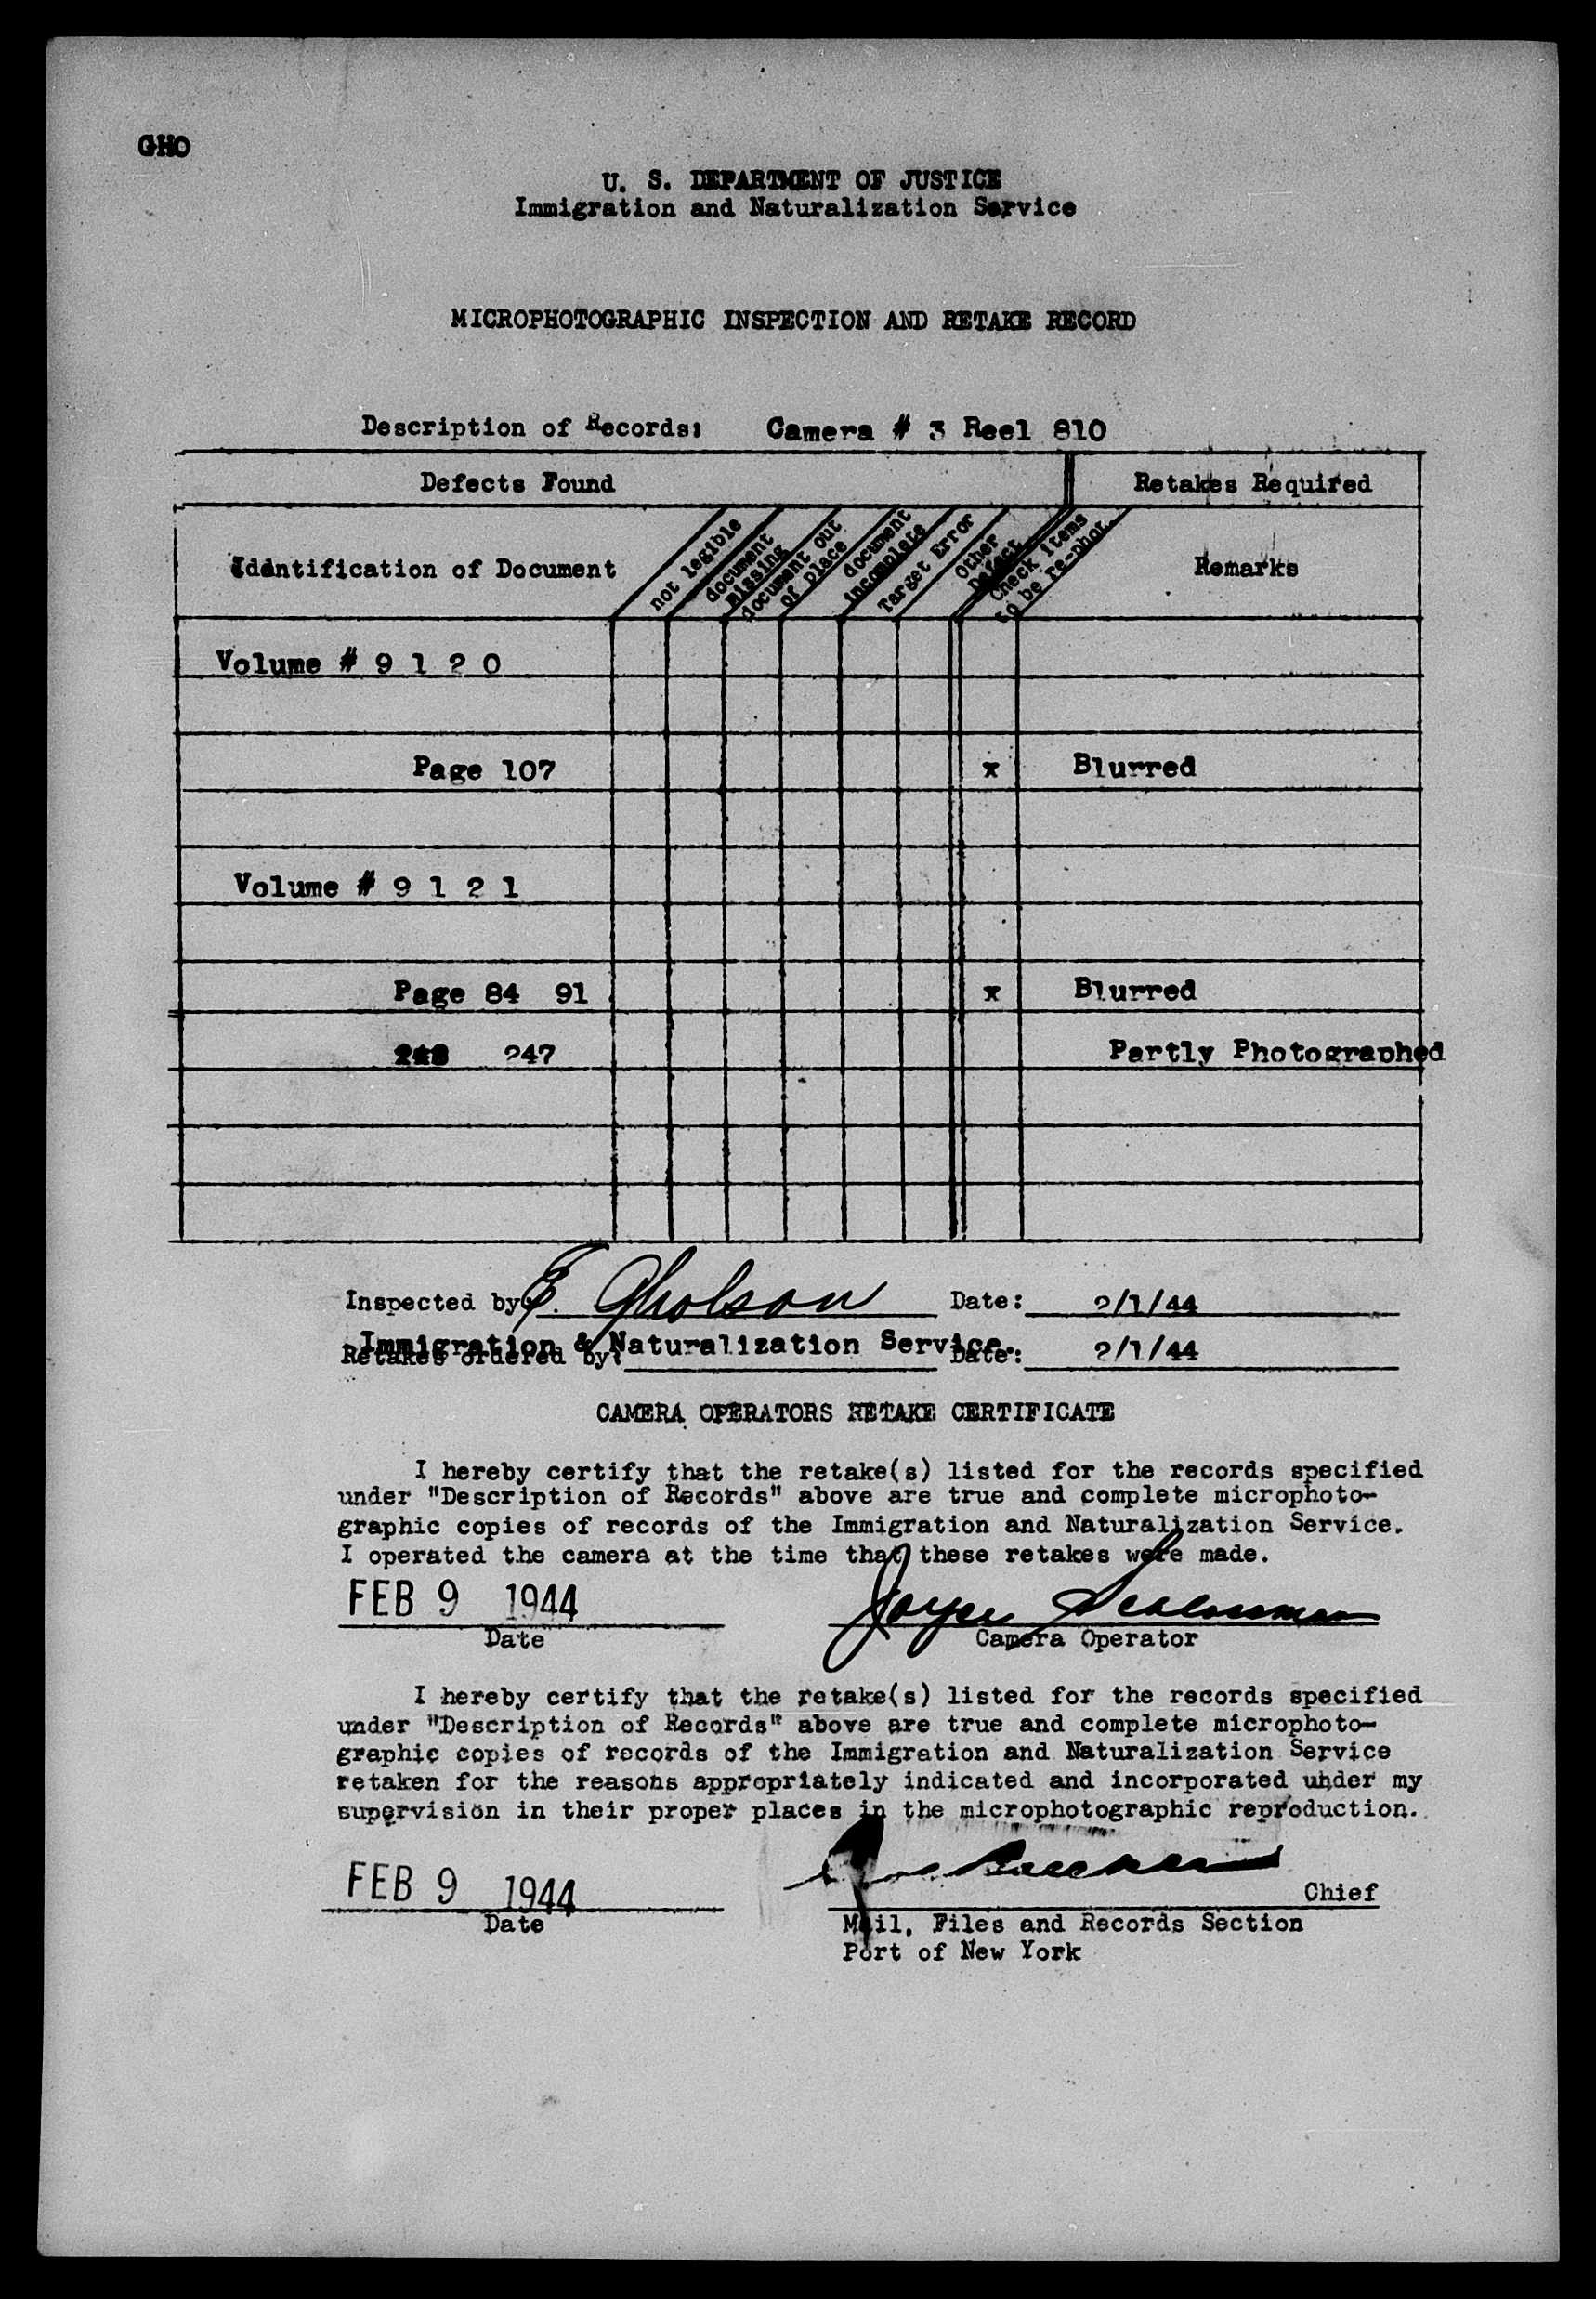 GHO
U. S. DEPARTMENT OF JUSTICE
Immigration and Naturalization Service
MICROPHOTOGRAPHIC INSPECTION AND RETAKE RECORD
Description of Records: Camera # 3 Reel 810
Defects Found Retakes Required
Identification of Document
not legible
document
missing
document out
of place
document
incomplete
Target Error
Other
Defect
Check items
to be re-phot.
Remarks
Volume # 9 1 2 0
Page 107 x Blurred
Volume # 9 1 2 1
Page 84 91 x Blurred
247 Partly Photographed
Inspected by E. Gholson Date: 2/1/44
Immigration & Naturalization Service.
Retakes ordered by: Date: 2/1/44
CAMERA OPERATORS RETAKE CERTIFICATE
I hereby certify that the retake(s) listed for the records specified
under "Description of Records" above are true and complete microphoto-
graphic copies of records of the Immigration and Naturalization Service.
I operated the camera at the time that these retakes were made.
FEB 9 1944 Joyce
Date Camera Operator
I hereby certify that the retake(s) listed for the records specified
under "Description of Records" above are true and complete microphoto-
graphic copies of records of the Immigration and Naturalization Service
retaken for the reasons appropriately indicated and incorporated under my
supervision in their proper places in the microphotographic reproduction.
FEB 9 1944 Chief
Date Mail, Files and Records Section
Port of New York